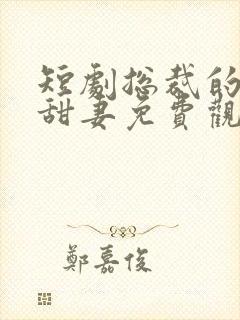 短劇总裁的
甜妻免費觀
鄭嘉俊